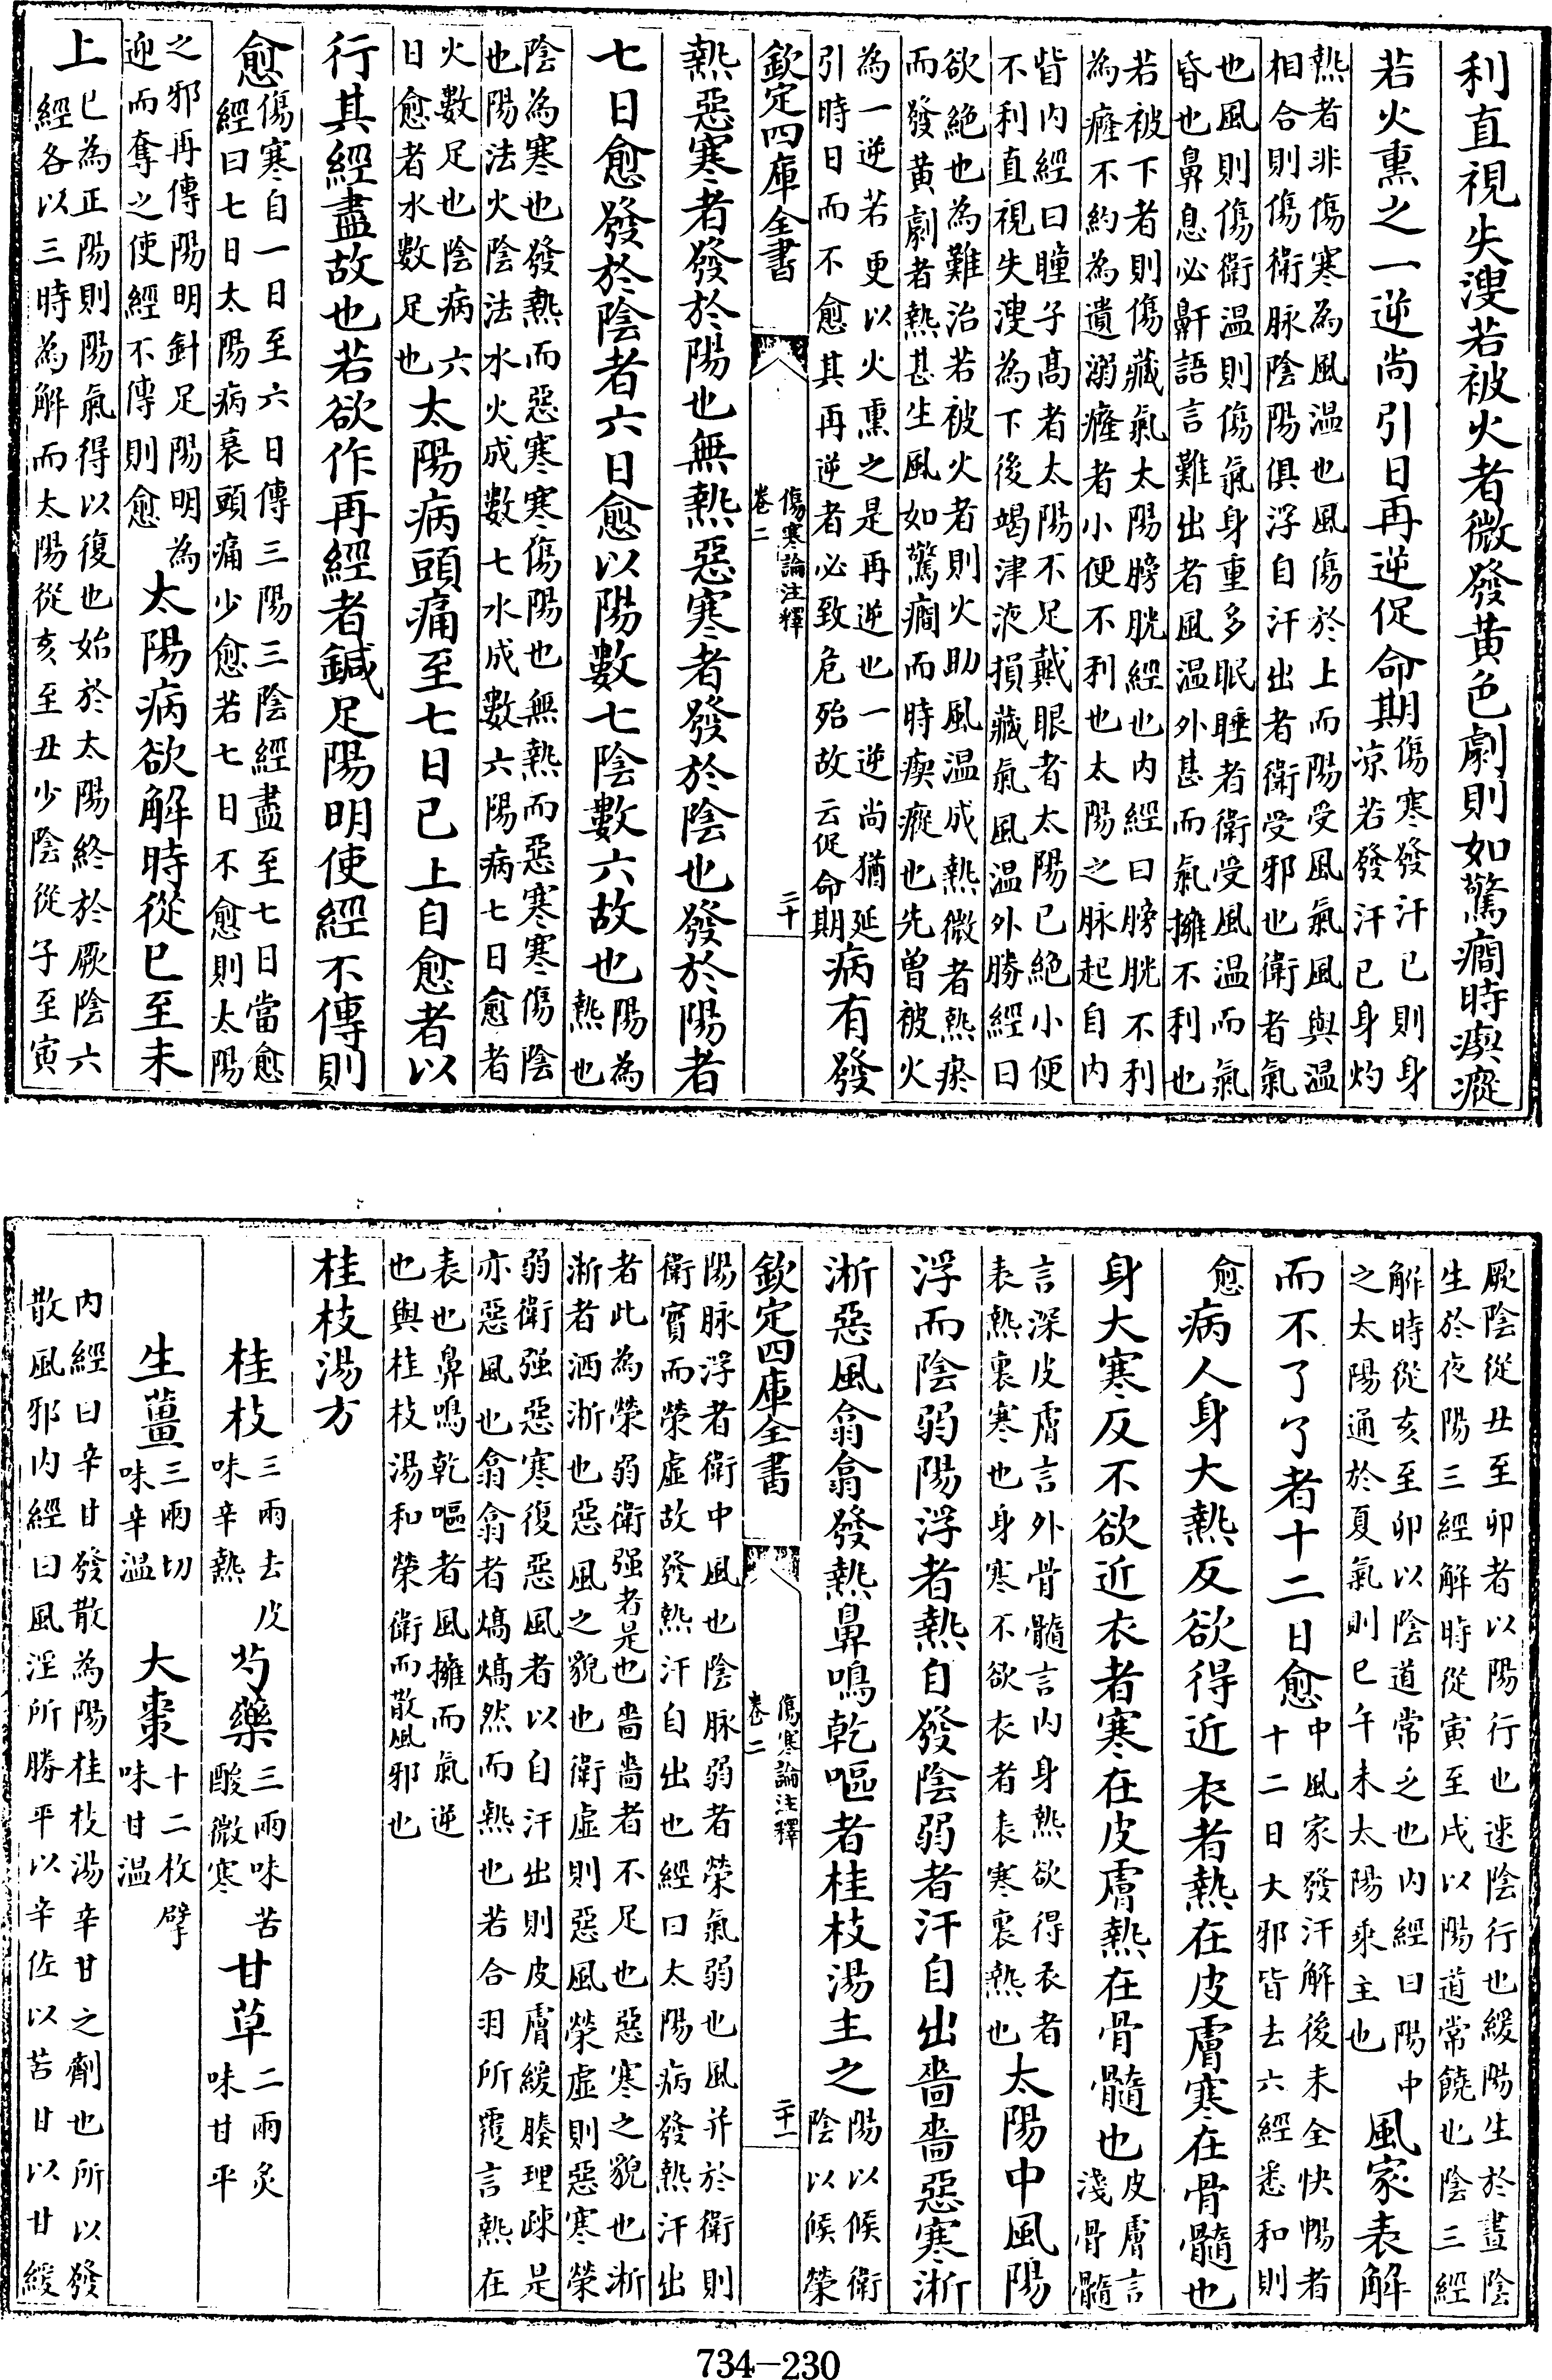 利直視失溲若被火者微發黄色劇則如驚癎時瘈瘲
若火熏之一逆尚引日再逆促命期傷寒發汗已則身凉若發汗已身灼
熱者非傷寒為風温也風傷於上而陽受風氣風與温
相合則傷衛脉陰陽俱浮自汗出者衛受邪也衛者氣
也風則傷衛温則傷氣身重多眠睡者衛受風温而氣
昏也鼻息必鼾語言難出者風温外甚而氣擁不利也
若被下者則傷藏氣太陽膀胱經也内經曰膀胱不利
為癃不約為遺溺癃者小便不利也太陽之脉起自内
眥内經曰瞳子髙者太陽不足戴眼者太陽已絶小便
不利直視失溲為下後竭津液損藏氣風温外勝經曰
欲絶也為難治若被火者則火助風温成熱微者熱瘀
而發黄劇者熱甚生風如驚癎而時瘈瘲也先曽被火
為一逆若更以火熏之是再逆也一逆尚猶延
引時日而不愈其再逆者必致危殆故云促命期病有發
欽定四庫全書
傷寒論注釋
卷二
二十
熱惡寒者發於陽也無熱惡寒者發於陰也發於陽者
七日愈發於陰者六日愈以陽數七陰數六故也陽為熱也
陰為寒也發熱而惡寒寒傷陽也無熱而惡寒寒傷陰
也陽法火陰法水火成數七水成數六陽病七日愈者
火數足也陰病六日愈者水數足也太陽病頭痛至七日已上自愈者以
行其經盡故也若欲作再經者鍼足陽明使經不傳則
愈傷寒自一日至六日傳三陽三陰經盡至七日當愈
經曰七日太陽病衰頭痛少愈若七日不愈則太陽
之邪再傳陽明針足陽明為迎而奪之使經不傳則愈太陽病欲解時從巳至未
上巳為正陽則陽氣得以復也始於太陽終於厥陰六
經各以三時為解而太陽從亥至丑少陰從子至寅
厥陰從丑至卯者以陽行也速陰行也緩陽生於晝陰
生於夜陽三經解時從寅至戌以陽道常饒也陰三經
解時從亥至卯以陰道常乏也内經曰陽中之太陽通於夏氣則巳午未太陽乘主也風家表解
而不了了者十二日愈中風家發汗解後未全快暢者十二日大邪皆去六經悉和則
愈病人身大熱反欲得近衣者熱在皮膚寒在骨髓也
身大寒反不欲近衣者寒在皮膚熱在骨髓也皮膚言淺骨髓
言深皮膚言外骨髓言内身熱欲得衣者表熱裏寒也身寒不欲衣者表寒裏熱也太陽中風陽
浮而陰弱陽浮者熱自發陰弱者汗自出嗇嗇惡寒淅
淅惡風翕翕發熱鼻鳴乾嘔者桂枝湯主之陽以候衛陰以候榮
欽定四庫全書
傷寒論注釋
卷二
二十一
陽脉浮者衛中風也陰脉弱者榮氣弱也風并於衛則
衛實而榮虚故發熱汗自出也經曰太陽病發熱汗出
者此為榮弱衛强者是也嗇嗇者不足也惡寒之貌也淅
淅者洒淅也惡風之貌也衛虚則惡風榮虚則惡寒榮
弱衛强惡寒復惡風者以自汗出則皮膚緩腠理疎是
亦惡風也翕翕者熇熇然而熱也若合羽所覆言熱在
表也鼻鳴乾嘔者風擁而氣逆
也與桂枝湯和榮衛而散風邪也
桂枝湯方
桂枝三兩去皮味辛熱 芍藥三兩味苦酸微寒 甘草二兩炙味甘平
生薑三兩切味辛温 大棗十二枚擘味甘温
内經曰辛甘發散為陽桂枝湯辛甘之劑也所以發
散風邪内經曰風淫所勝平以辛佐以苦甘以甘緩
734—230